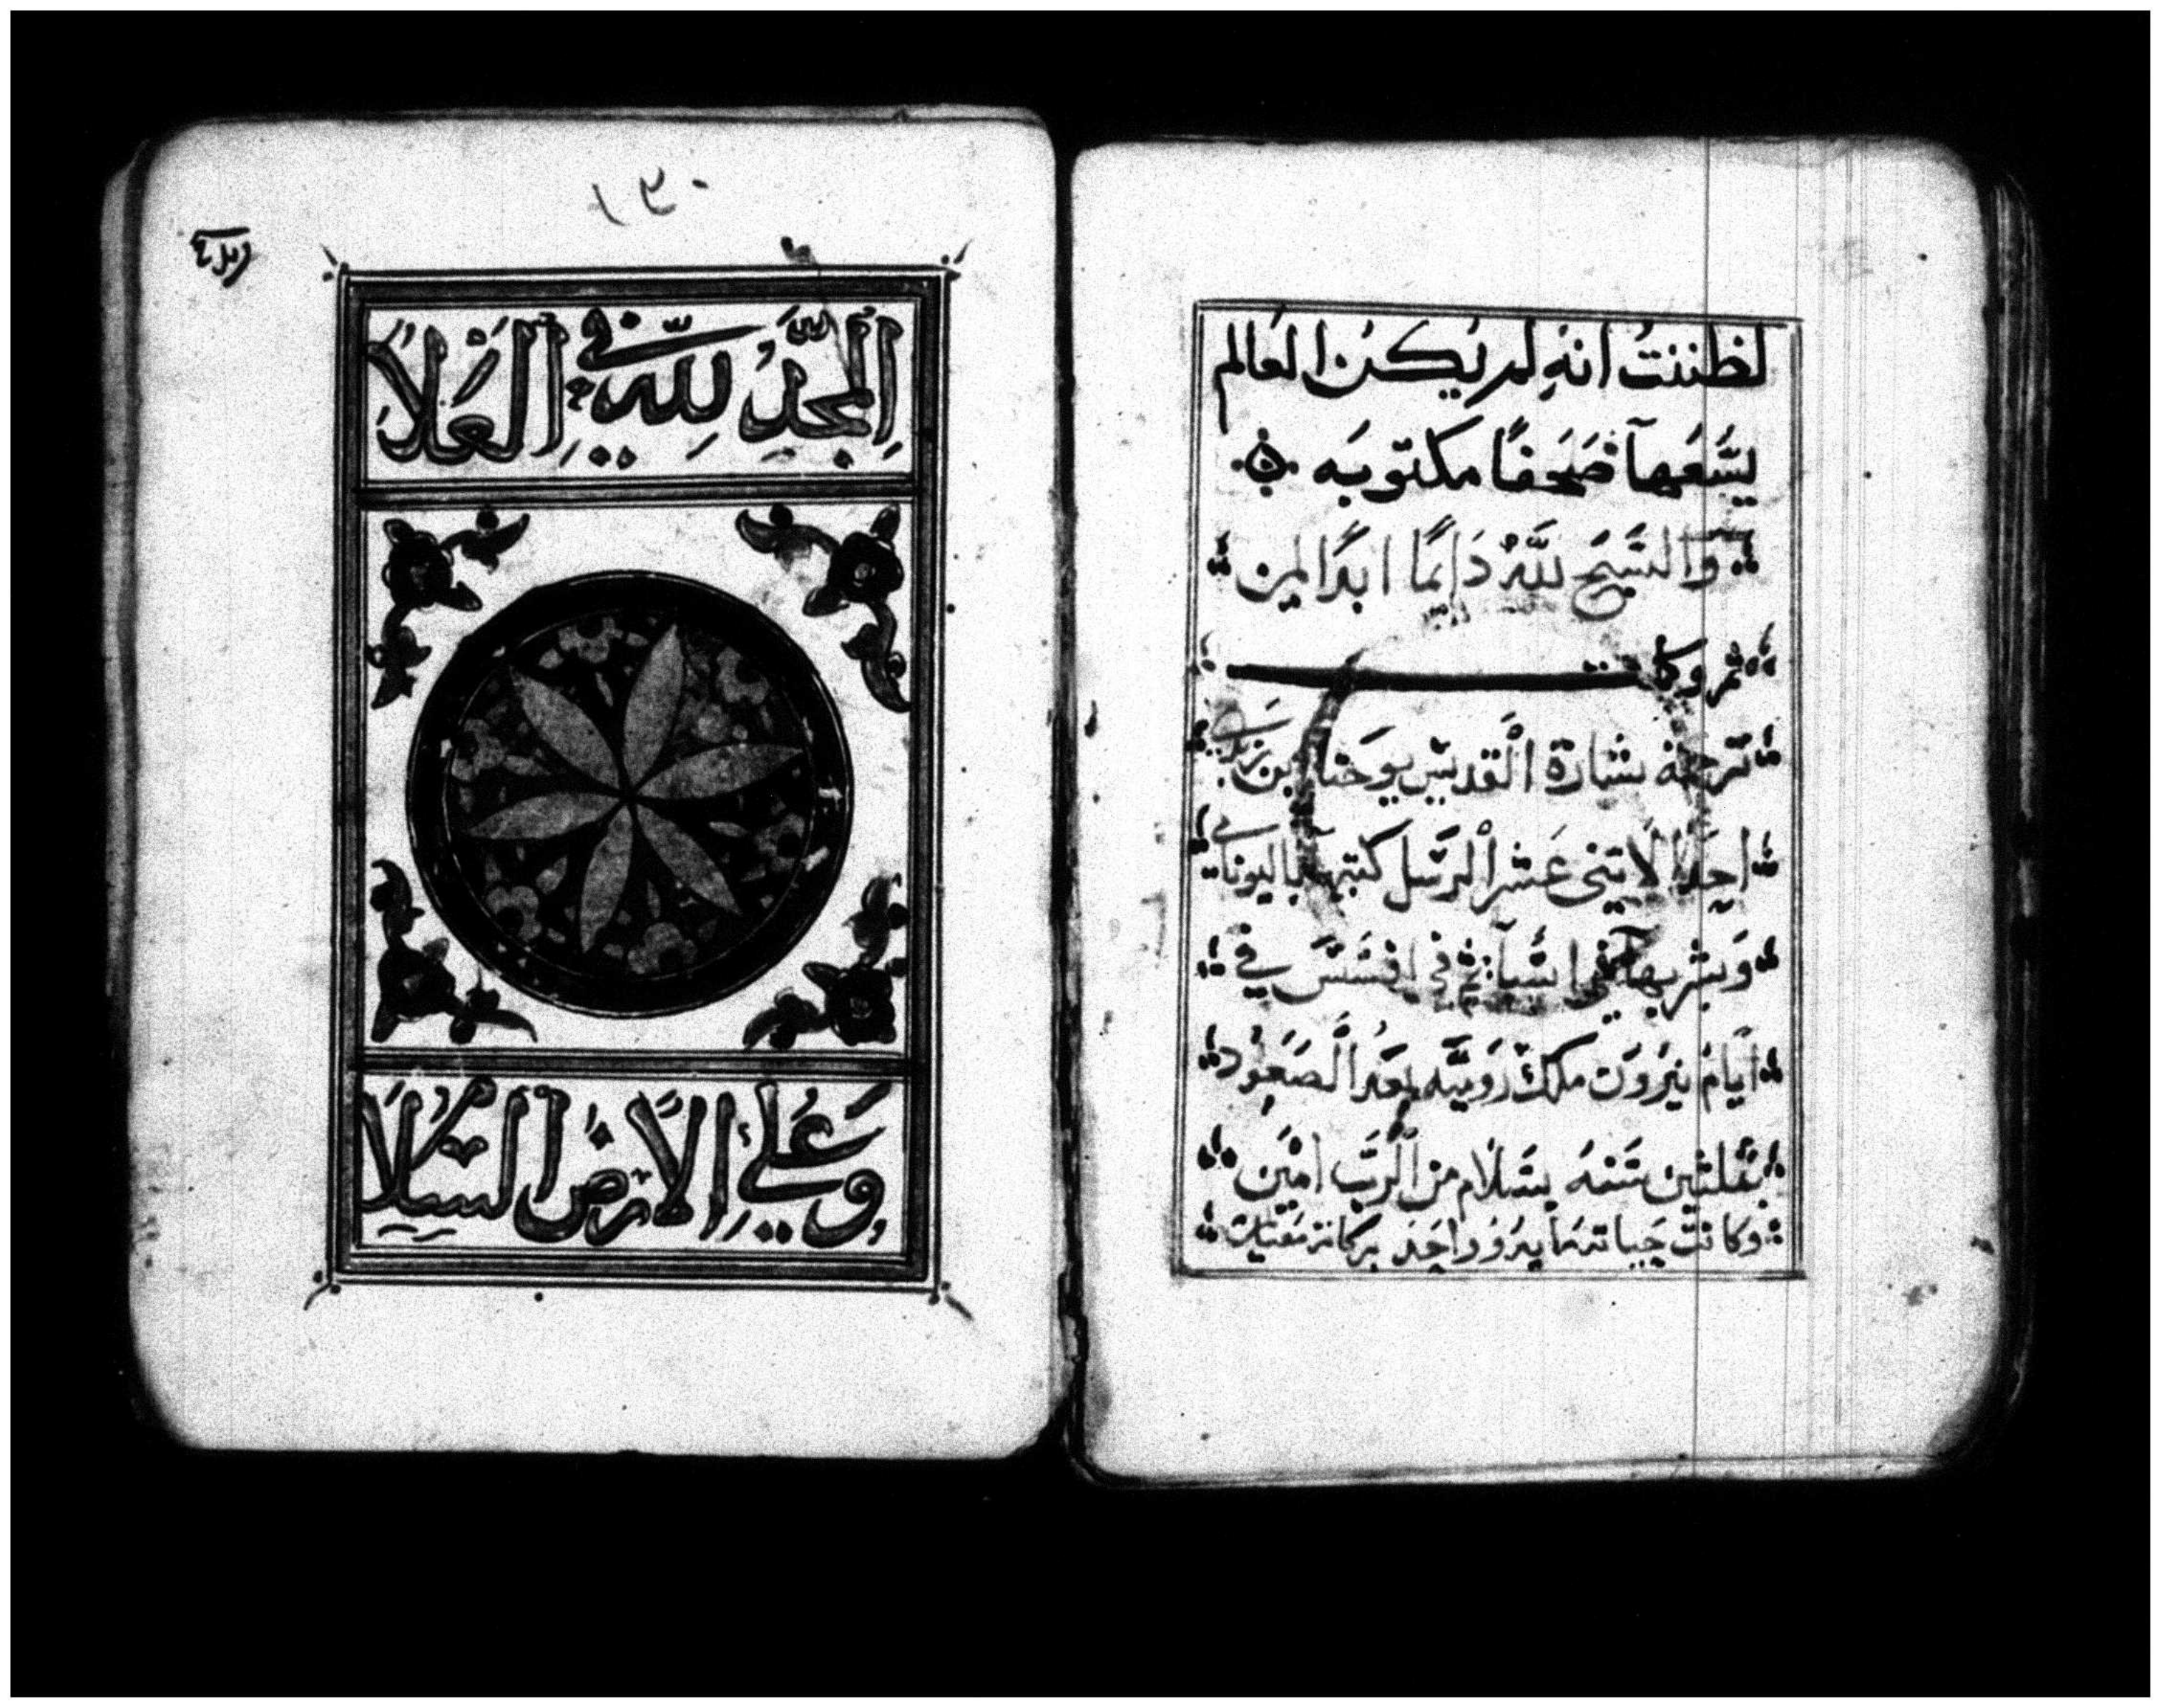 لظننتُ انه لم يكن العالم
يسعها صحفًا مكتوبه
والتسبيح لله دايمًا ابدًا امين
ثم وكل
ترجمة بشارة القديس يوحنا ابن زبدي
احد الاثنى عشر الرسل كتبها باليوناني
وبشر بها في افسس في
ايام نيرون ملك رومية بعد الصعود
بثلثين سنه بسلام من الرب امين
وكانت
١٣٠
المجد لله في العلا
وعلى الارض السلا